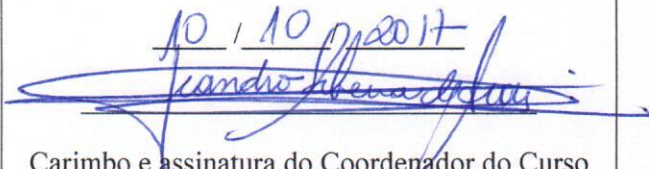 10 / 10 / 2017
Carimbo e assinatura do Coordenador do Curso